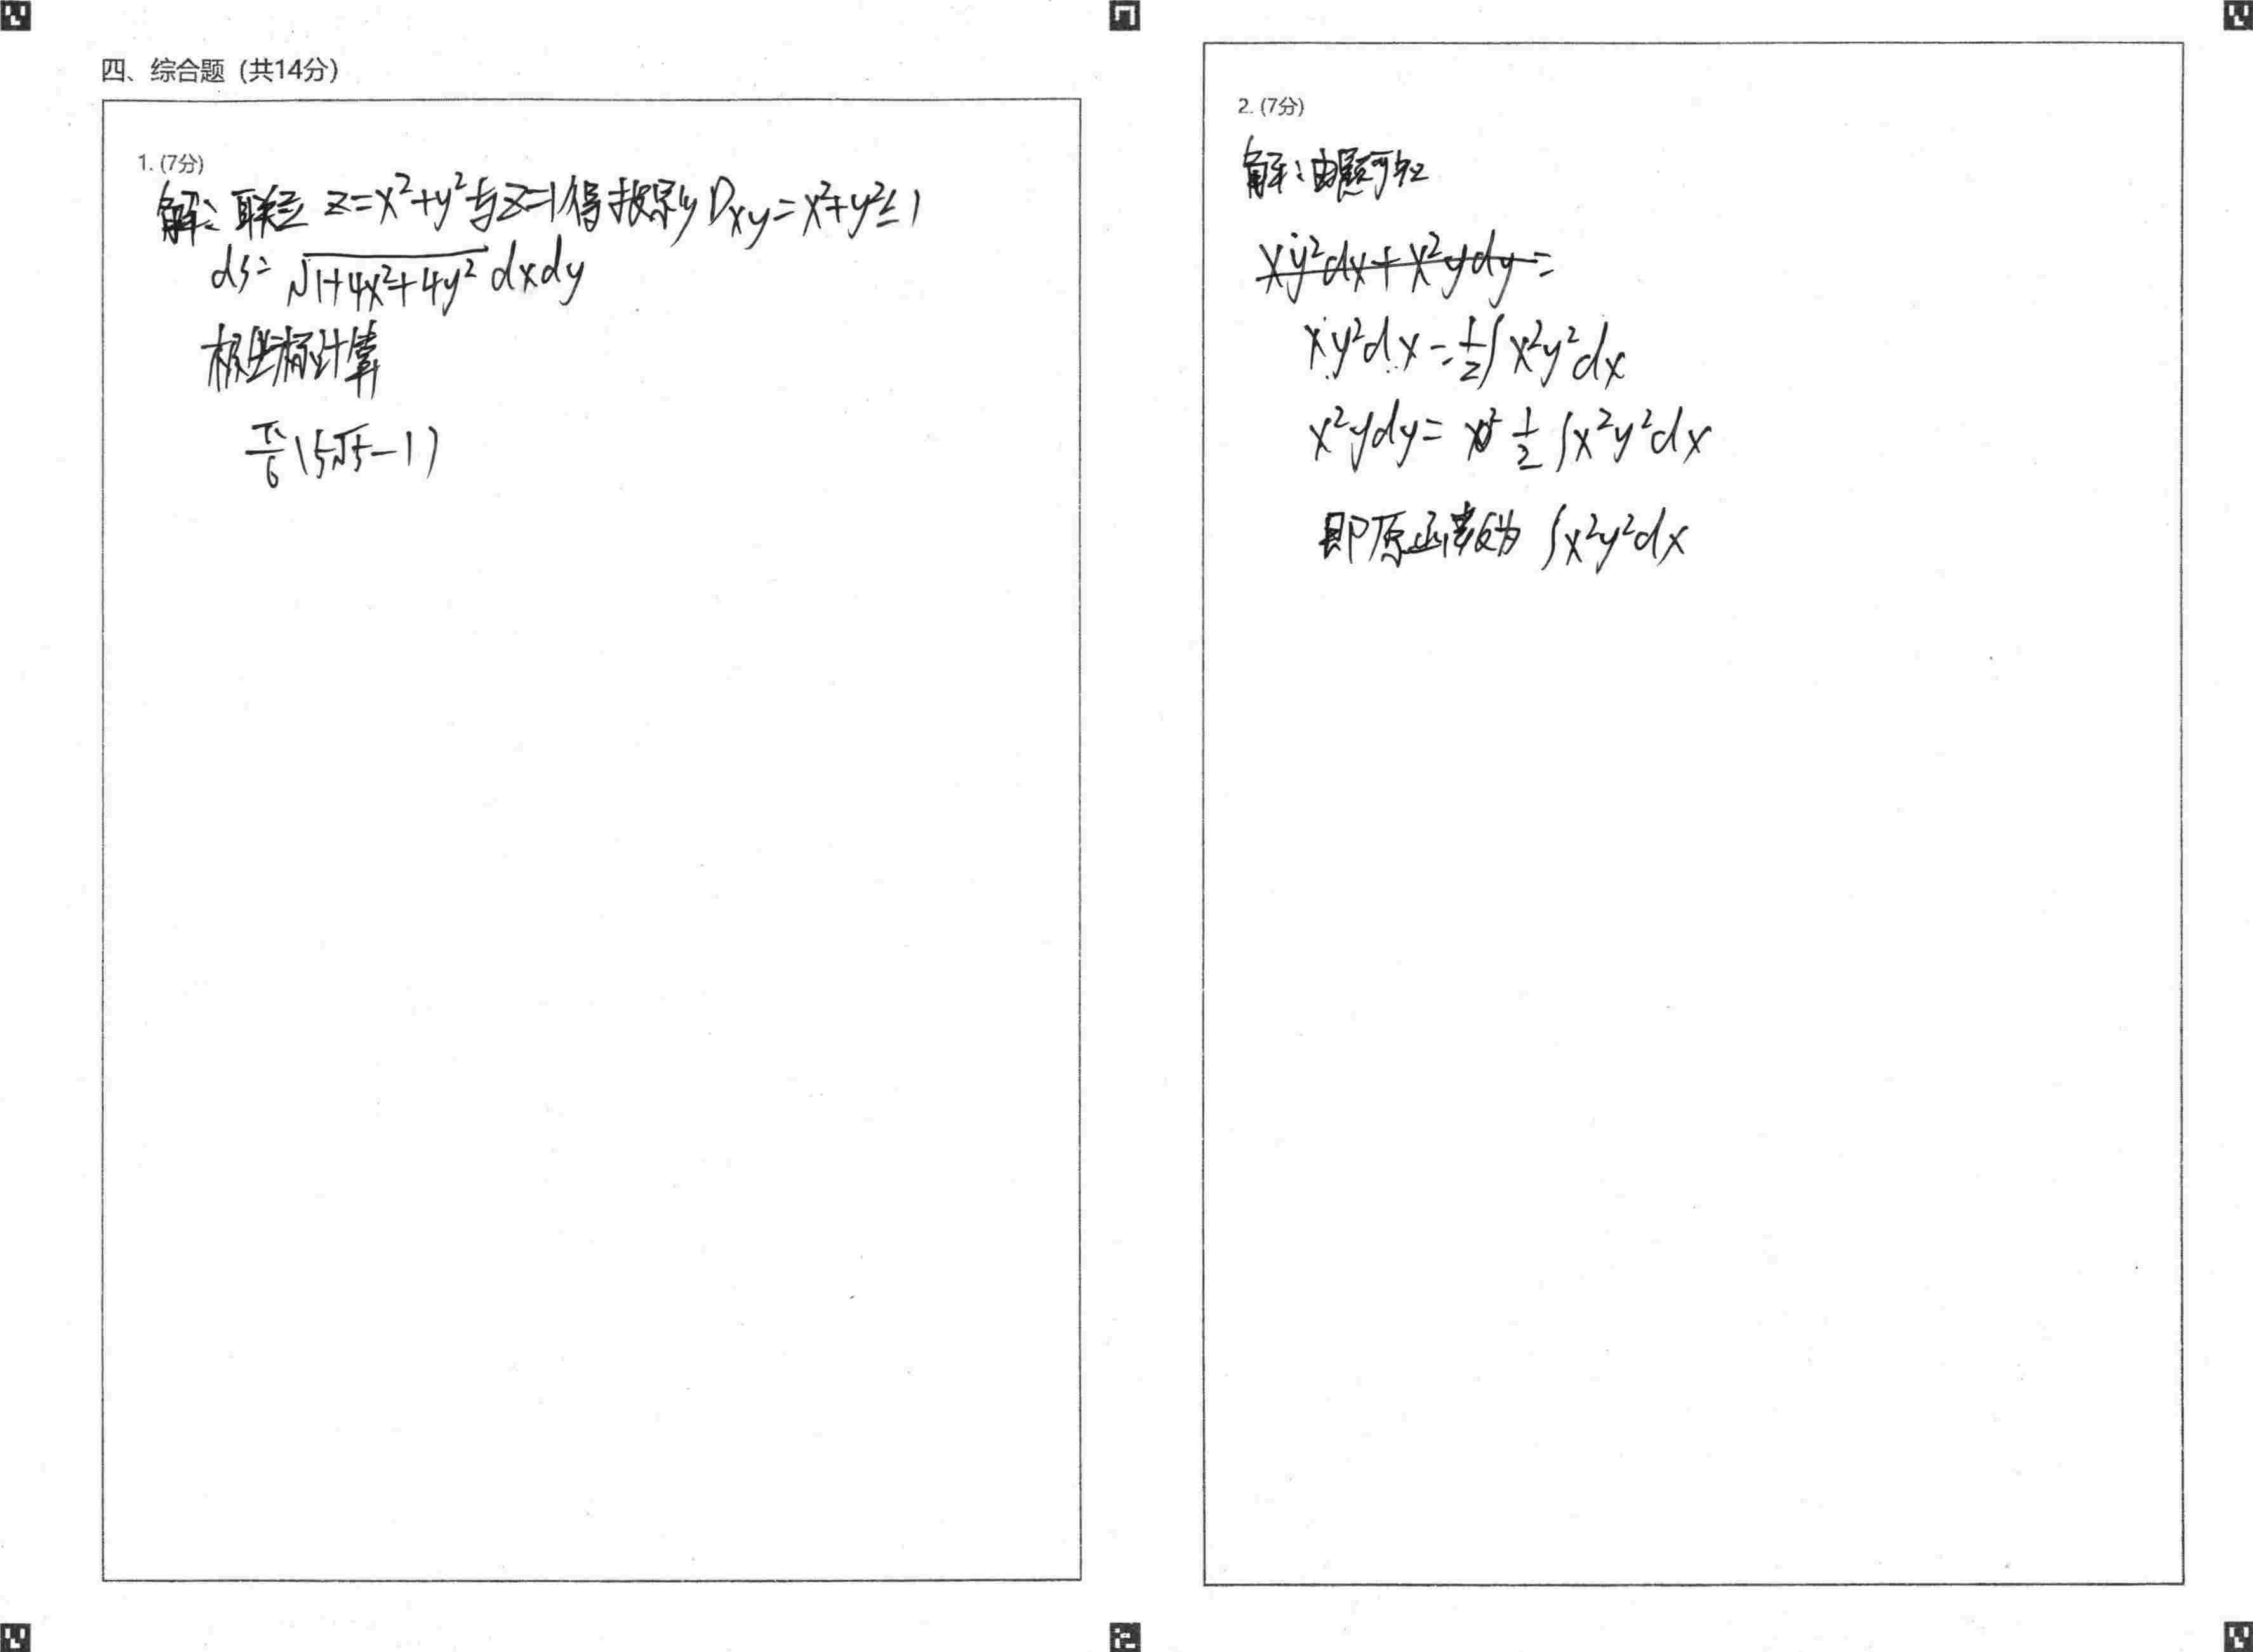 四、综合题（共14分）
1. (7分)
解：联立 z=x²+y²与z=1得投影 Dxy=x²+y²≤1
ds=√(1+4x²+4y²) dxdy
极坐标计算
π/6 (5√5-1)
2. (7分)
解：由题可知
xy²dx+x²ydy=
xy²dx=1/2∫x²y²dx
x²ydy= 1/2 ∫x²y²dx
即原函数为 ∫x²y²dx